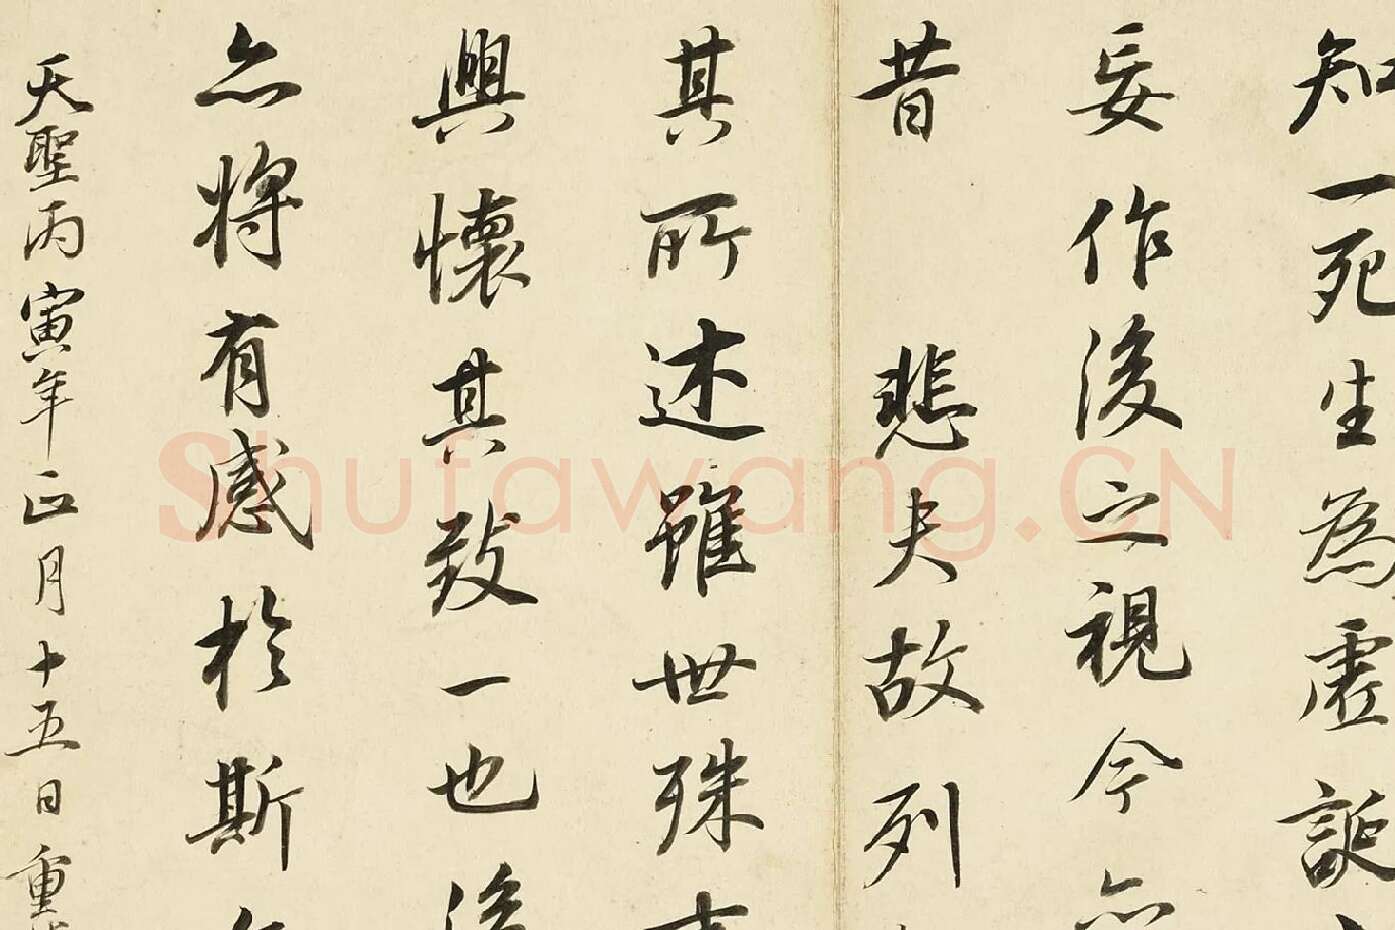 知一死生為虛誕
妄作後之視今亦
昔悲夫故列
其所述雖世殊事
興懷其致一也後
亦將有感於斯
天聖丙寅年正月十五日重
Shufawang.CN